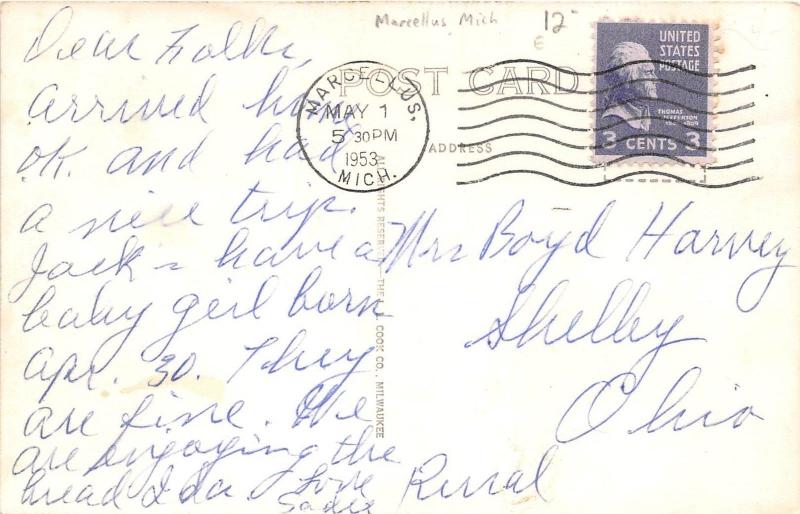 Marcellus, Mich
12
POST CARD
ADDRESS
MARCELLUS,
MAY 1
5 30 PM
1953
MICH.
UNITED
STATES
POSTAGE
THOMAS
JEFFERSON
3 CENTS 3
Dear Folks,
arrived home
ok. and had
a nice trip.
Jack - have a
baby girl born
Apr. 30. They
are fine. We
are engoying the
bread Ida. Love
Sadie
Mrs Boyd Harvey
Shelby
Ohio
Rural
ALL RIGHTS RESERVED THE L. L. COOK CO., MILWAUKEE